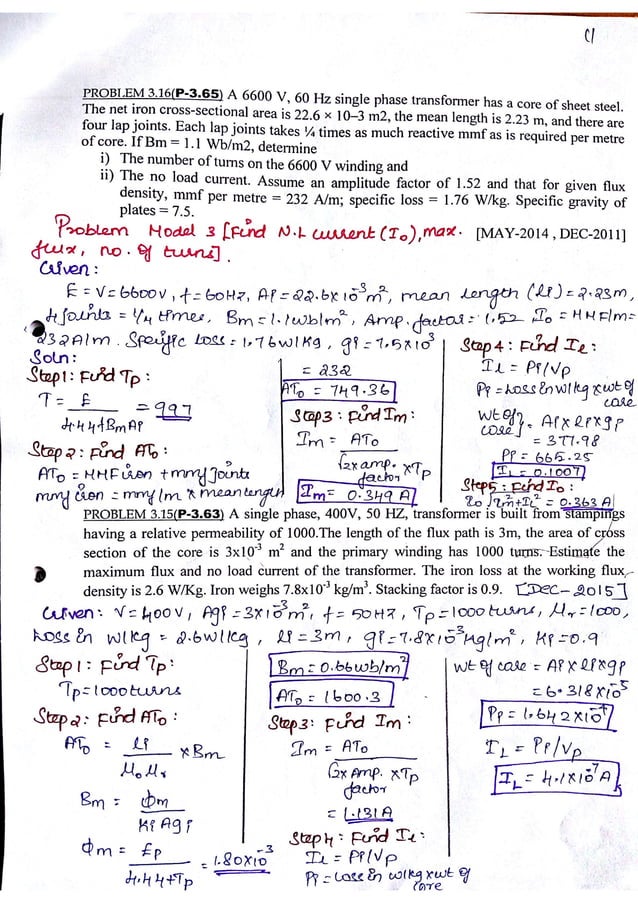 C1
PROBLEM 3.16(P-3.65) A 6600 V, 60 Hz single phase transformer has a core of sheet steel.
The net iron cross-sectional area is 22.6 × 10–3 m2, the mean length is 2.23 m, and there are
four lap joints. Each lap joints takes ¼ times as much reactive mmf as is required per metre
of core. If Bm = 1.1 Wb/m2, determine
i) The number of turns on the 6600 V winding and
ii) The no load current. Assume an amplitude factor of 1.52 and that for given flux
density, mmf per metre = 232 A/m; specific loss = 1.76 W/kg. Specific gravity of
plates = 7.5.
Problem Model 3 [Find N.L current (I₀), max. [MAY-2014 , DEC-2011]
flux, no. of turns].
Given:
E=V=6600V, f=60Hz, Ai=22.6x10⁻³m², mean length (li)=2.23m,
4 joints = 1/4 times, Bm=1.1wb/m², Amp. factor=1.52 I₀=MMF/m=
232A/m. Specific Loss=1.76W/Kg, gi=7.5x10³
Soln:
Step1: Find Tp:
T = E / 4.44fBmAi = 997
Step2: Find AT₀:
AT₀ = MMF iron + mmf Joints
mmf iron = mmf/m x mean length
= 232
AT₀ = 749.36
Step3: Find Im:
Im = AT₀ / √2x amp. factor xTp
Im = 0.349 A
Step 4: Find Il:
Il = Pi/Vp
Pi = Loss in w/kg x wt of core
wt of core } = Ai x li x gi
= 377.98
Pi = 665.25
IL = 0.1007
Step5: Find I₀:
I₀ √Im²+IL² = 0.363 A
PROBLEM 3.15(P-3.63) A single phase, 400V, 50 HZ, transformer is built from stampings
having a relative permeability of 1000.The length of the flux path is 3m, the area of cross
section of the core is 3x10⁻³ m² and the primary winding has 1000 turns. Estimate the
maximum flux and no load current of the transformer. The iron loss at the working flux
density is 2.6 W/Kg. Iron weighs 7.8x10³ kg/m³. Stacking factor is 0.9. [Dec-2015]
Given: V=400V, Agi=3x10⁻³m², f=50Hz, Tp=1000turns, Mr=1000,
Loss in w/kg = 2.6w/kg, li=3m, gi=7.8x10⁻³Kg/m², Ki=0.9
Step 1: Find Tp:
Tp=1000turns
Step2: Find AT₀:
AT₀ = li / M₀Mr x Bm
Bm = Φm / Ki Agi
Φm = Ep / 4.44fTp = 1.80x10⁻³
Bm=0.66wb/m²
AT₀ = 1600.3
Step3: Find Im:
Im = AT₀ / √2x Amp. factor xTp
= 1.131A
Step4: Find Il:
Il = Pi/Vp
Pi = Loss in w/kg x wt of core
wt of core = Ai x li x gi
= 6.318x10⁻⁵
Pi = 1.642x10⁻⁴
IL = Pi/Vp
IL = 4.1x10⁻⁷A